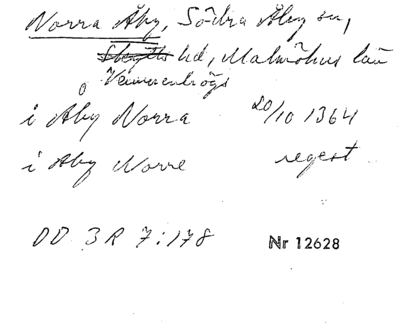 Norra Åby, Södra Åby sn,
Skytts hd, Malmöhus län
Vemmenhögs
i Åby Norra 20/10 1364
i Aby Norre regest
DD 3R 7:178 Nr 12628